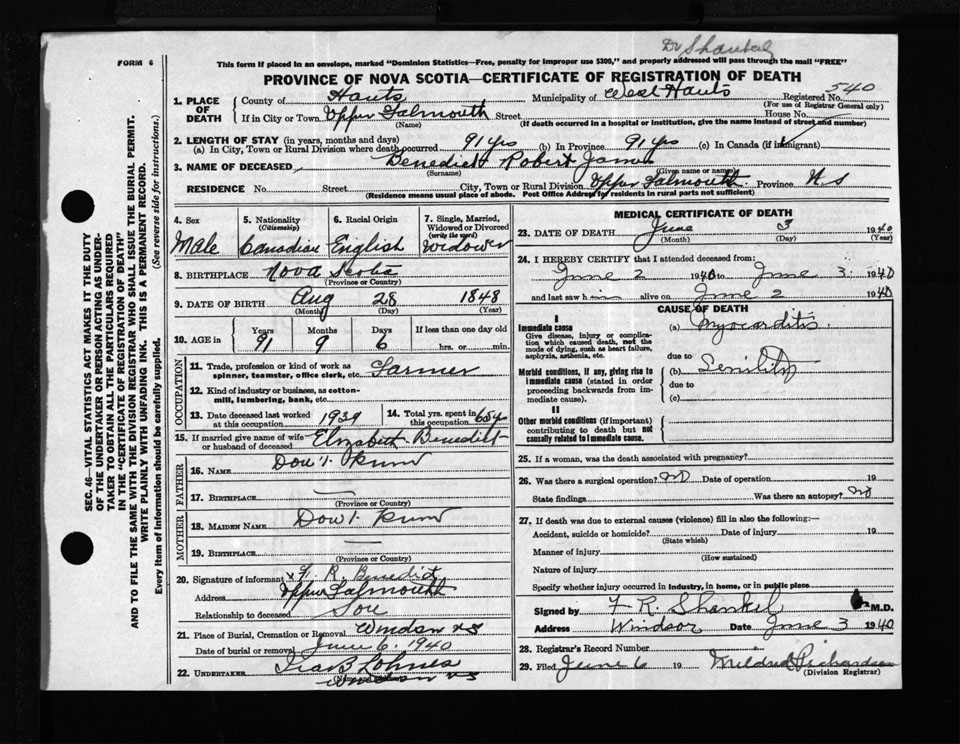 Dr Shankel
FORM 6
This form if placed in an envelope, marked "Dominion Statistics—Free, penalty for improper use $300," and properly addressed will pass through the mail "FREE"
PROVINCE OF NOVA SCOTIA—CERTIFICATE OF REGISTRATION OF DEATH
540
1. PLACE OF DEATH County of Hants Municipality of West Hants Registered No.
(For use of Registrar General only)
If in City or Town Upper Falmouth Street House No.
(Name) (If death occurred in a hospital or institution, give the name instead of street and number)
2. LENGTH OF STAY (in years, months and days)
(a) In City, Town or Rural Division where death occurred 91 yrs (b) In Province 91 yrs (c) In Canada (if immigrant)
3. NAME OF DECEASED Benedict Robert James
(Surname) (Given name or names)
RESIDENCE No. Street City, Town or Rural Division Upper Falmouth Province N S
(Residence means usual place of abode. Post Office Address for residents in rural parts not sufficient)
SEC. 46—VITAL STATISTICS ACT MAKES IT THE DUTY
OF THE UNDERTAKER OR PERSON ACTING AS UNDER-
TAKER TO OBTAIN ALL THE PARTICULARS REQUIRED
IN THE "CERTIFICATE OF REGISTRATION OF DEATH"
AND TO FILE THE SAME WITH THE DIVISION REGISTRAR WHO SHALL ISSUE THE BURIAL PERMIT.
WRITE PLAINLY WITH UNFADING INK. THIS IS A PERMANENT RECORD.
Every item of Information should be carefully supplied. (See reverse side for instructions.)
4. Sex
Male
5. Nationality
(Citizenship)
Canadian
6. Racial Origin
English
7. Single, Married,
Widowed or Divorced
(write the word)
Widower
8. BIRTHPLACE Nova Scotia
(Province or Country)
9. DATE OF BIRTH Aug 28 1848
(Month) (Day) (Year)
10. AGE in
Years Months Days If less than one day old
91 9 6 hrs. or min.
OCCUPATION
11. Trade, profession or kind of work as
spinner, teamster, office clerk, etc. Farmer
12. Kind of industry or business, as cotton-
mill, lumbering, bank, etc.
13. Date deceased last worked
at this occupation 1939
14. Total yrs. spent in
this occupation 65 y
15. If married give name of wife
or husband of deceased Elizabeth Benedict
FATHER
16. NAME Don't Know
17. BIRTHPLACE —
(Province or Country)
MOTHER
18. MAIDEN NAME Don't Know
19. BIRTHPLACE —
(Province or Country)
20. Signature of informant x R. Benedict
Address Upper Falmouth
Relationship to deceased Son
21. Place of Burial, Cremation or Removal Windsor N S
Date of burial or removal June 6. 1940
22. UNDERTAKER Ira B Lohnes
Windsor N S
MEDICAL CERTIFICATE OF DEATH
23. DATE OF DEATH June 3 1940
(Month) (Day) (Year)
24. I HEREBY CERTIFY that I attended deceased from:
June 2 1940 to June 3 1940
and last saw h im alive on June 2 1940
CAUSE OF DEATH
I
Immediate cause (a) Myocarditis
Give disease, injury or complica-
tion which caused death, not the
mode of dying, such as heart failure,
asphyxia, asthenia, etc.
due to
Morbid conditions, if any, giving rise to (b) Senility
immediate cause (stated in order due to
proceeding backwards from im-
mediate cause). (c)
II
Other morbid conditions (if important)
contributing to death but not
causally related to immediate cause.
25. If a woman, was the death associated with pregnancy?
26. Was there a surgical operation? no Date of operation 19
State findings Was there an autopsy? no
27. If death was due to external causes (violence) fill in also the following:—
Accident, suicide or homicide? Date of injury 19
(State which)
Manner of injury
(How sustained)
Nature of injury
Specify whether injury occurred in industry, in home, or in public place
Signed by F R. Shankel M.D.
Address Windsor Date June 3 1940
28. Registrar's Record Number
29. Filed June 6 19 Mildred Richardson
(Division Registrar)